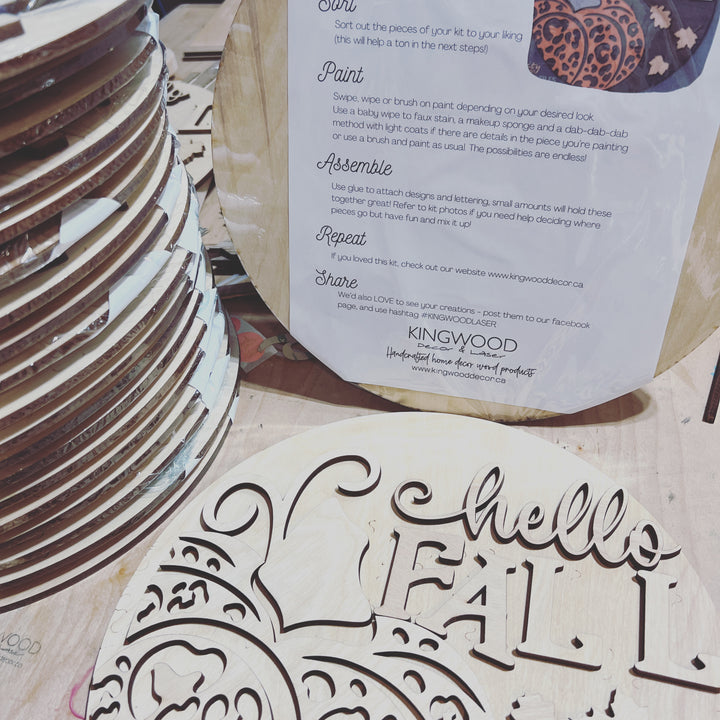 Sort
Sort out the pieces of your kit to your liking
(this will help a ton in the next steps!)
Paint
Swipe, wipe or brush on paint depending on your desired look.
Use a baby wipe to faux stain, a makeup sponge and a dab-dab-dab
method with light coats if there are details in the piece you're painting
or use a brush and paint as usual. The possibilities are endless!
Assemble
Use glue to attach designs and lettering, small amounts will hold these
together great! Refer to kit photos if you need help deciding where
pieces go but have fun and mix it up!
Repeat
If you loved this kit, check out our website www.kingwooddecor.ca
Share
We'd also LOVE to see your creations - post them to our facebook
page, and use hashtag #KINGWOODLASER
KINGWOOD
Decor & Laser
Handcrafted home decor wood products
www.kingwooddecor.ca
hello
FALL